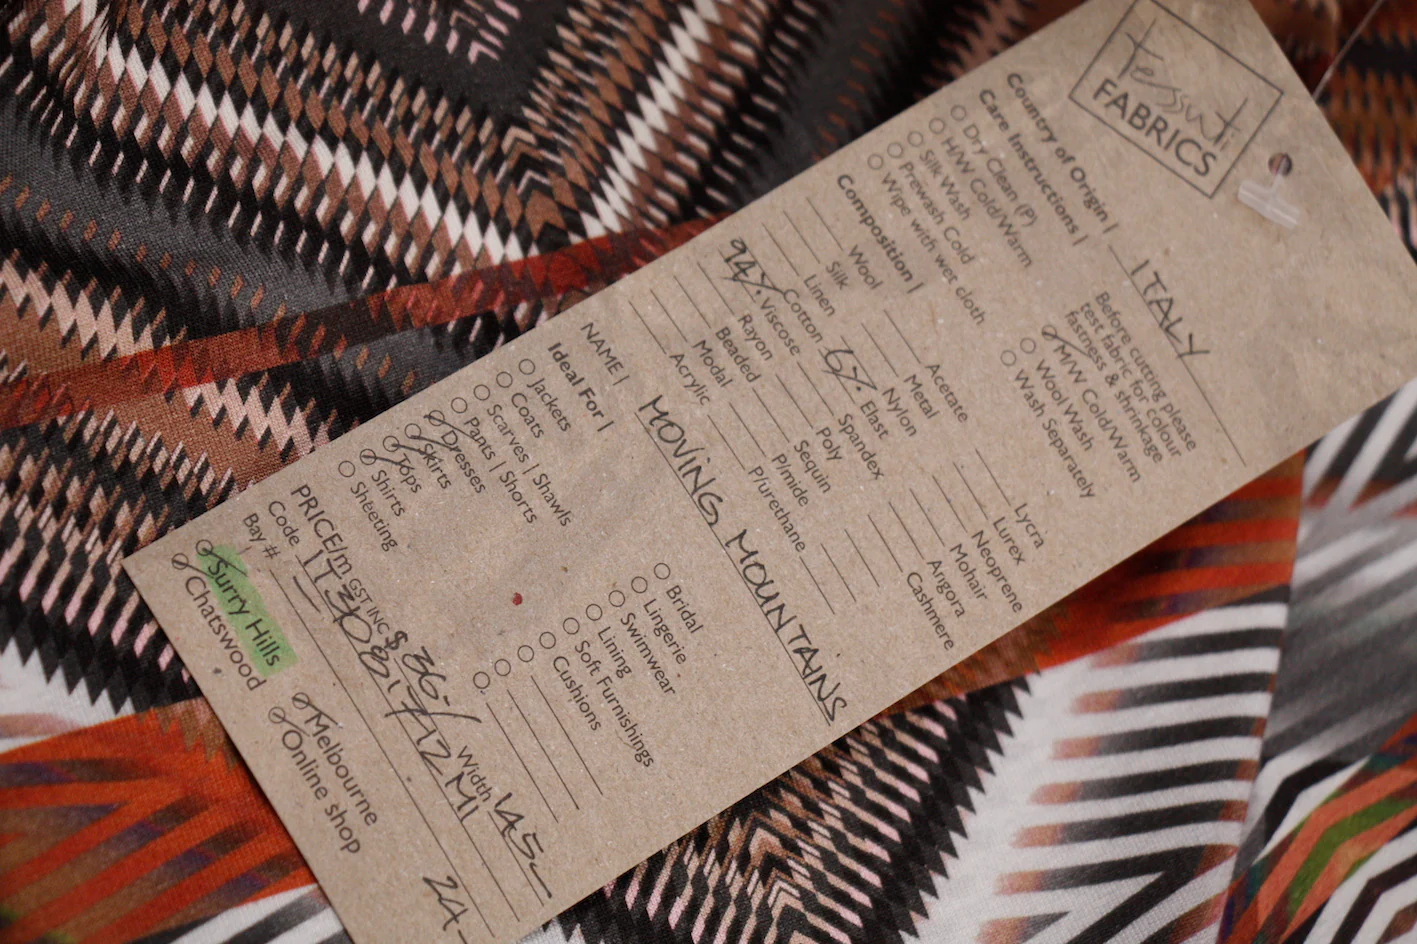 tessuti
FABRICS
Country of Origin | ITALY
Care Instructions |
Dry Clean (P)
H/W Cold/Warm
Silk Wash
Prewash Cold
Wipe with wet cloth
Before cutting please
test fabric for colour
fastness & shrinkage
M/W Cold/Warm
Wool Wash
Wash Separately
Composition |
Wool
Silk
Linen
Cotton
94% Viscose
Rayon
Beaded
Modal
Acrylic
Acetate
Metal
Nylon
6% Elast
Spandex
Poly
Sequin
P/mide
P/urethane
Lycra
Lurex
Neoprene
Mohair
Angora
Cashmere
NAME | MOVING MOUNTAINS
Ideal For |
Jackets
Coats
Scarves | Shawls
Pants | Shorts
Dresses
Skirts
Tops
Shirts
Sheeting
Bridal
Lingerie
Swimwear
Lining
Soft Furnishings
Cushions
PRICE/m GST INC $ 36.- Width 145
Code
Bay # 24
Surry Hills
Chatswood
Melbourne
Online shop